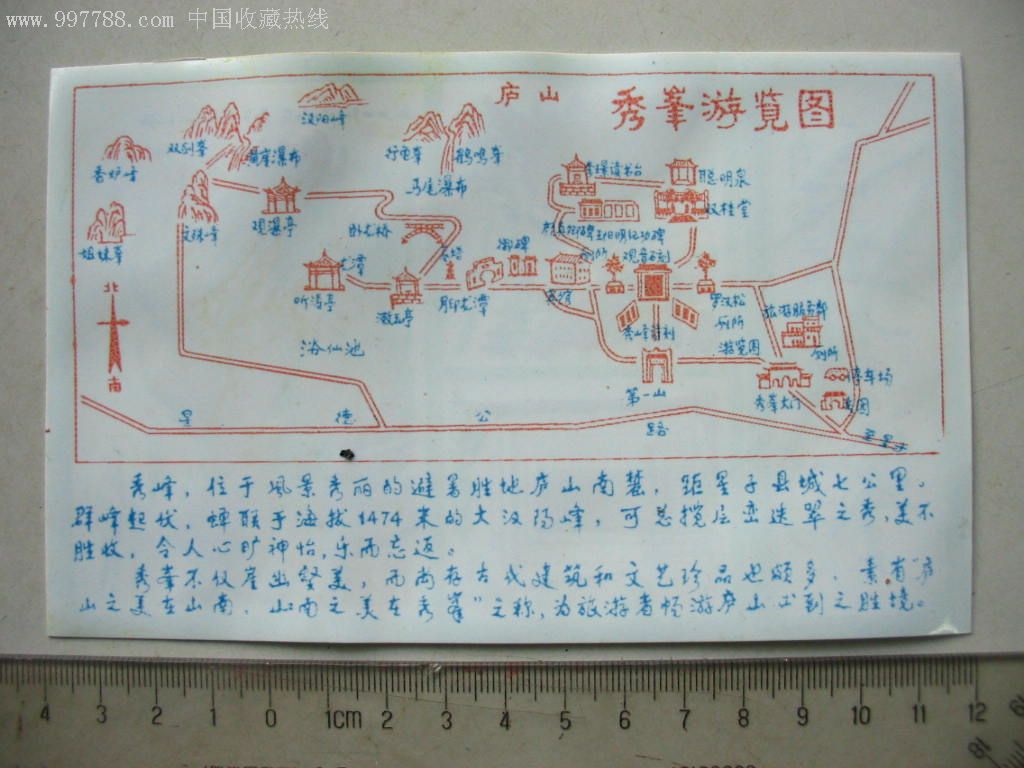 www.997788.com 中国收藏热线
庐山 秀峯游览图
汉阳峰
双剑峯
瀑布
鹤鸣峯
香炉峰
马尾瀑布
读书台
聪明泉
双桂堂
文殊峰
观瀑亭
卧龙桥
御碑
观音石刻
姐妹峯
龙潭
听涛亭
漱玉亭
宾馆
罗汉松
厕所
游览图
旅游服务部
厕所
北
南
浴仙池
秀峰石刻
第一山
秀峯大门
停车场
星 德 公 路
至星子
秀峰，位于风景秀丽的避暑胜地庐山南麓，距星子县城七公里。
群峰起伏，蝉联于海拔1474米的大汉阳峰，可总揽层峦迭翠之秀，美不
胜收，令人心旷神怡，乐而忘返。
秀峯不仅崖出壑美，而尚存古代建筑和文艺珍品也颇多，素有“庐
山之美在山南，山南之美在秀峯”之称，为旅游者畅游庐山必到之胜境。
4 3 2 1 0 1cm 2 3 4 5 6 7 8 9 10 11 12